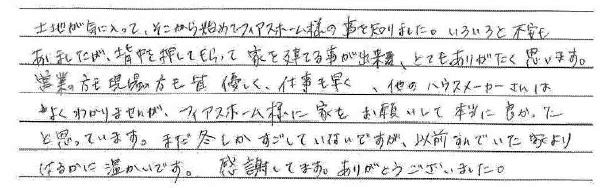 土地が気に入って、そこから始めてフィアスホーム様の事を知りました。いろいろと不安も
ありましたが、背中を押してもらって家を建てる事が出来、とてもありがたく思います。
営業の方も現場の方も皆優しく、仕事も早く、他のハウスメーカーさんは
よくわかりませんが、フィアスホーム様に家をお願いして本当に良かった
と思っています。まだ冬しかすごしていないですが、以前すんでいた家より
はるかに温かいです。感謝してます。ありがとうございました。